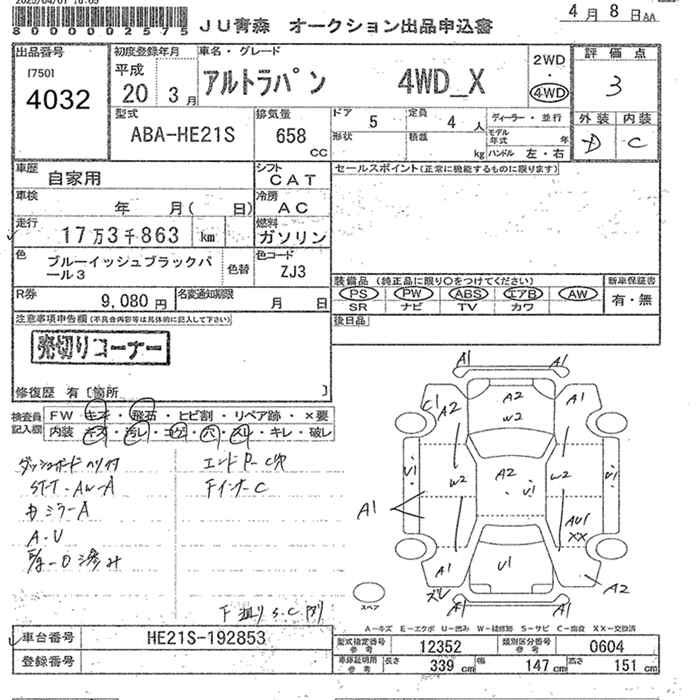 80000002575
JU青森 オークション出品申込書
4月 8日AA
出品番号
[750]
4032
初度登録年月
平成
20 3月
車名・グレード
アルトラパン 4WD_X
2WD
・
4WD
評価点
3
外装 内装
D C
型式
ABA-HE21S
排気量
658
CC
ドア 5
定員 4 人
形状
積載 kg
ディーラー・並行
モデル
年式 年
ハンドル 左・右
車歴
自家用
シフト
CAT
車検
年 月( 日)
冷房
AC
走行
17万3千863 km
燃料
ガソリン
色
ブルーイッシュブラックパ
ール3
色替
色コード
ZJ3
R券
9,080 円
名変通知期限
月 日
セールスポイント(正常に機能するものに限ります)
装備品 (純正品に限り○をつけてください)
PS PW ABS エアB AW
SR ナビ TV カワ
新車保証書
有・無
後日品
注意事項申告欄(不具合内容等は具体的に記入して下さい)
売切りコーナー
修復歴 有〔箇所 〕
検査員
記入欄
FW キズ・飛石・ヒビ割・リペア跡・×要
内装 キズ・汚レ・コゲ・穴・スレ・キレ・破レ
ST-T-AW-A
ミラーA
A・U
A1 A1
C1 A2 A2 W2 A1
U1 W2 A2 U1 W2 U1
A1
AU1
XX
A1 U1 A2
ズレ A1 A1
スペア
A-キズ E-エクボ U-凹み W-補修跡 S-サビ C-腐食 XX-交換済
車台番号 HE21S-192853
登録番号
型式指定番号
参考
12352
類別区分番号
参考
0604
車庫証明用
参考
長さ 339 cm
幅 147 cm
高さ 151 cm